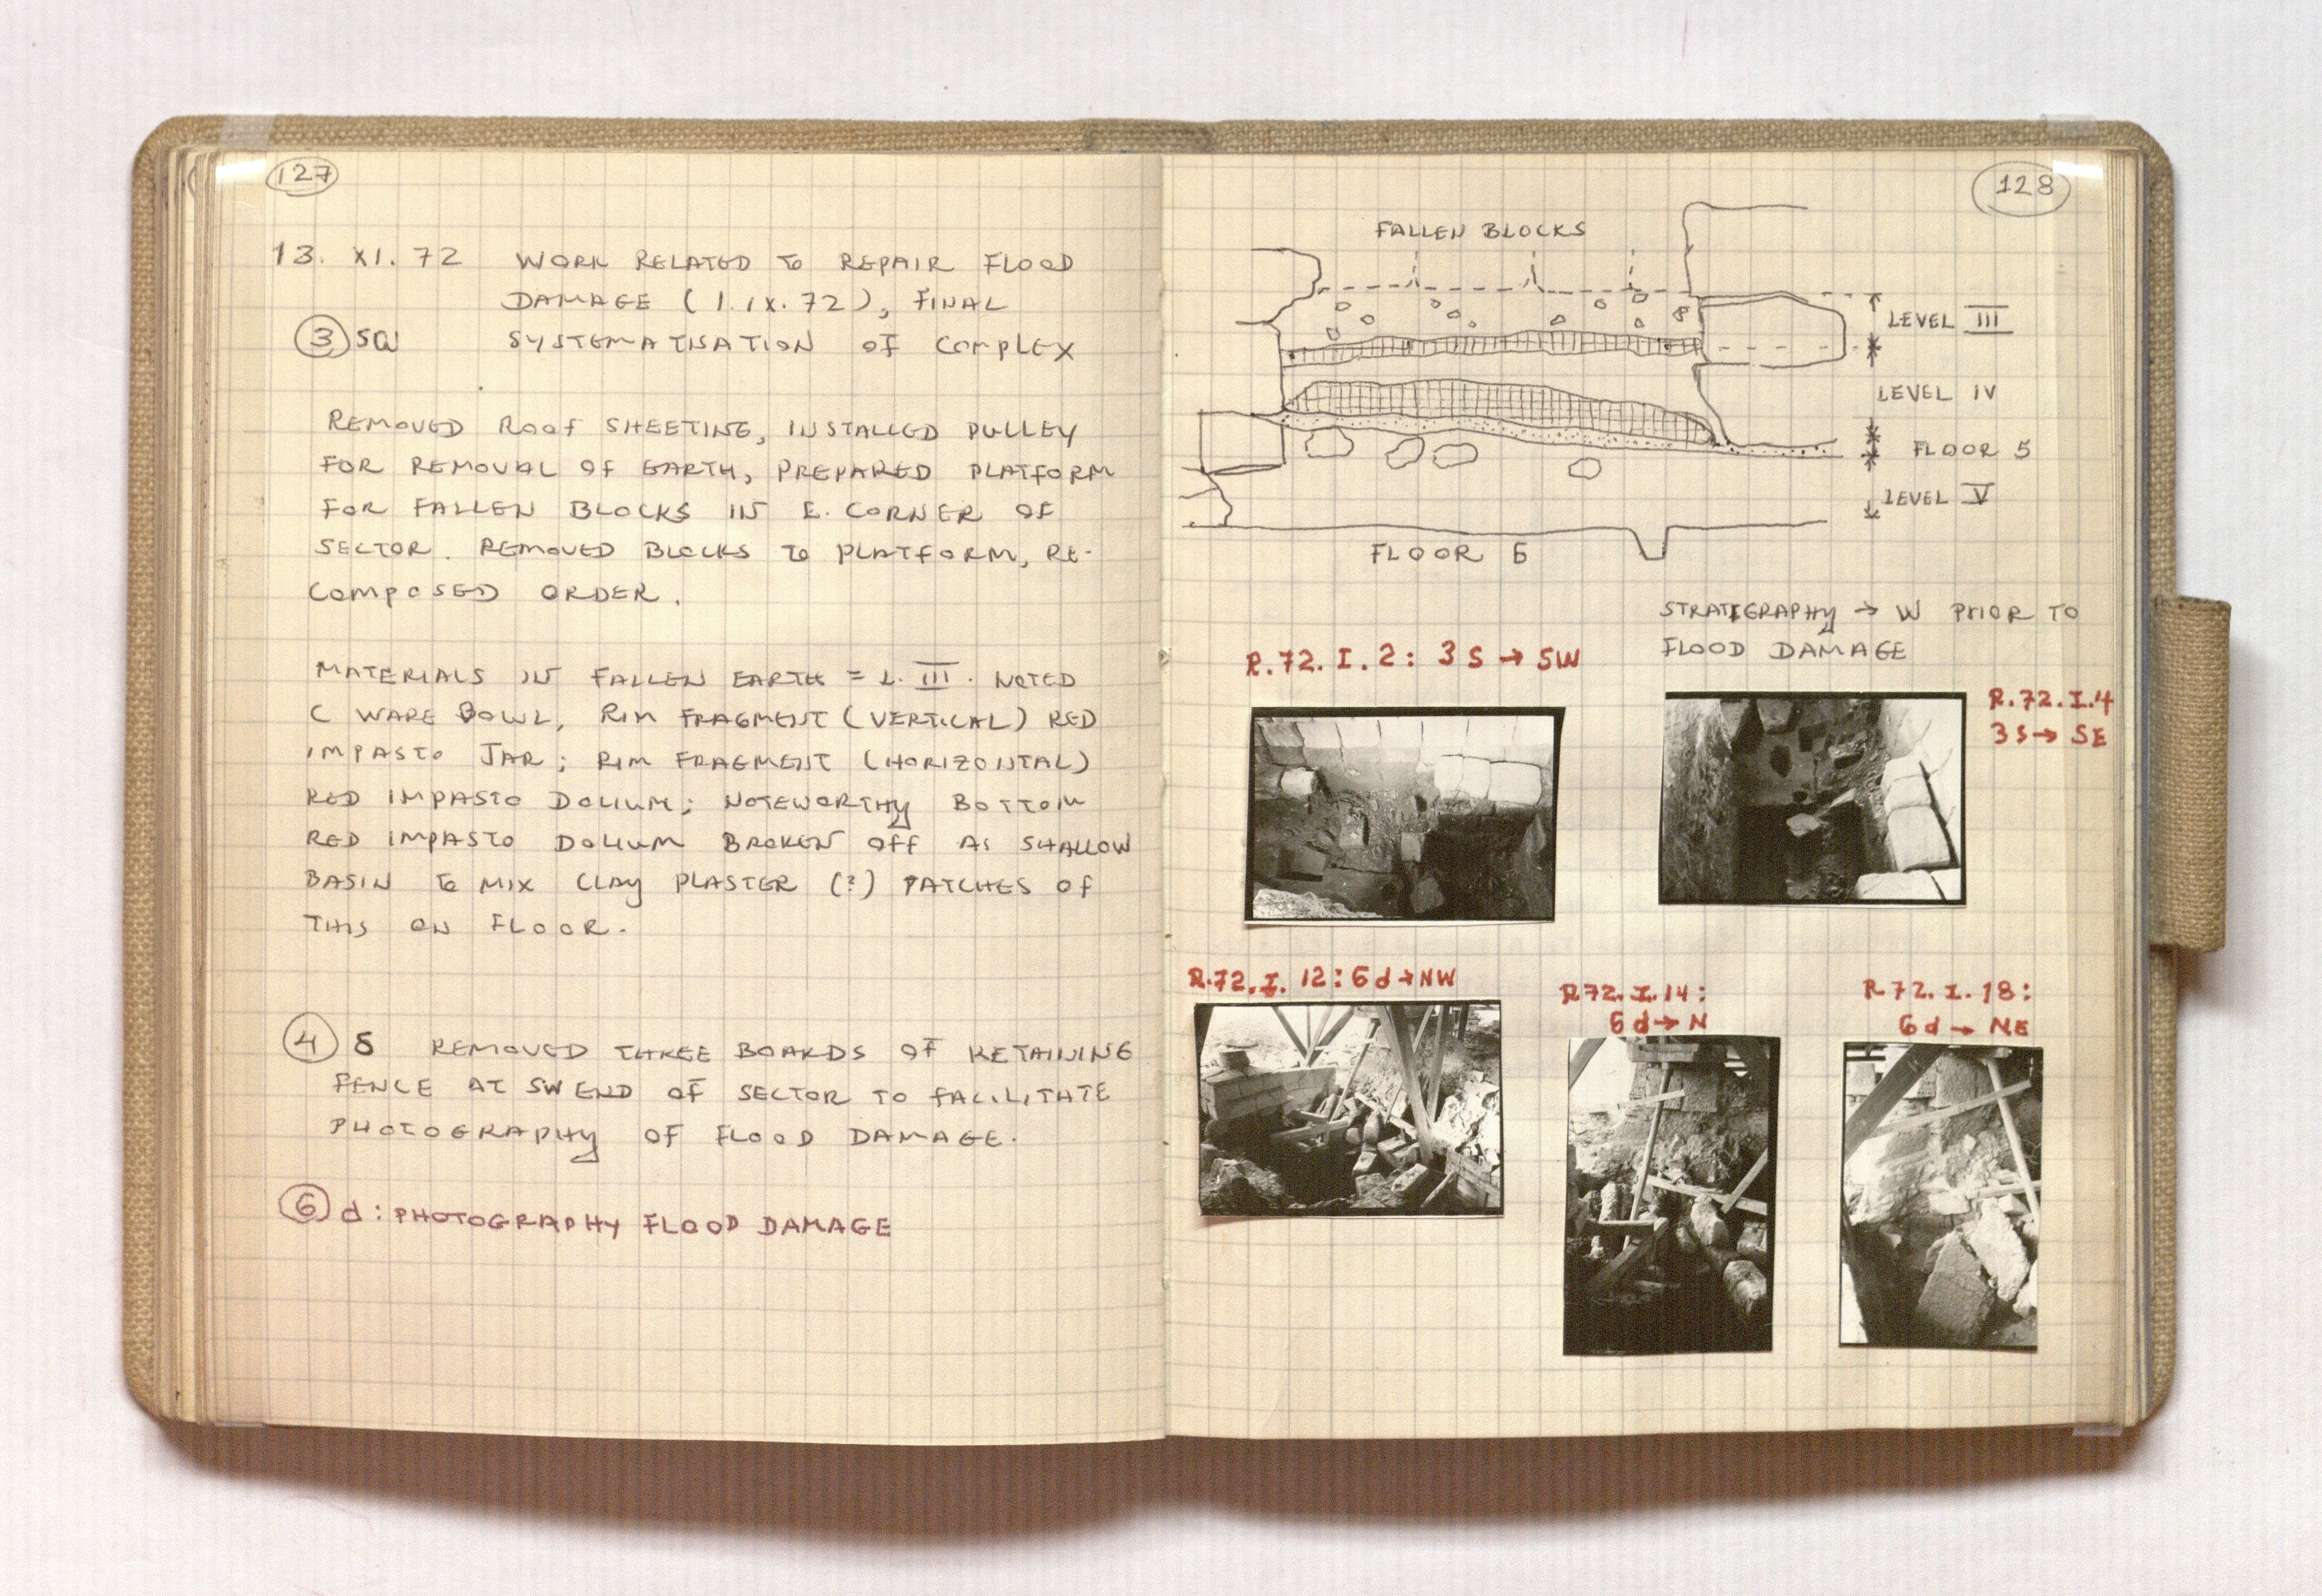 127
13. XI. 72 WORK RELATED TO REPAIR FLOOD
DAMAGE (1. IX. 72), FINAL
3 SW SYSTEMATISATION OF COMPLEX
REMOVED ROOF SHEETING, INSTALLED PULLEY
FOR REMOVAL OF EARTH, PREPARED PLATFORM
FOR FALLEN BLOCKS IN E. CORNER OF
SECTOR. REMOVED BLOCKS TO PLATFORM, RE-
COMPOSED ORDER.
MATERIALS IN FALLEN EARTH = L. III. NOTED
C WARE BOWL, RIM FRAGMENT (VERTICAL) RED
IMPASTO JAR; RIM FRAGMENT (HORIZONTAL)
RED IMPASTO DOLIUM; NOTEWORTHY BOTTOM
RED IMPASTO DOLIUM BROKEN OFF AS SHALLOW
BASIN TO MIX CLAY PLASTER (?) PATCHES OF
THIS ON FLOOR.
4 S REMOVED THREE BOARDS OF RETAINING
FENCE AT SW END OF SECTOR TO FACILITATE
PHOTOGRAPHY OF FLOOD DAMAGE.
6 d: PHOTOGRAPHY FLOOD DAMAGE
128
FALLEN BLOCKS
LEVEL III
LEVEL IV
FLOOR 5
LEVEL V
FLOOR 6
STRATIGRAPHY → W PRIOR TO
FLOOD DAMAGE
R.72. I. 2: 3 S → SW
R.72.I.4
3 S → SE
R.72.I. 12: 6 d → NW
R72.I.14:
6 d → N
R72.I.18:
6 d → NE